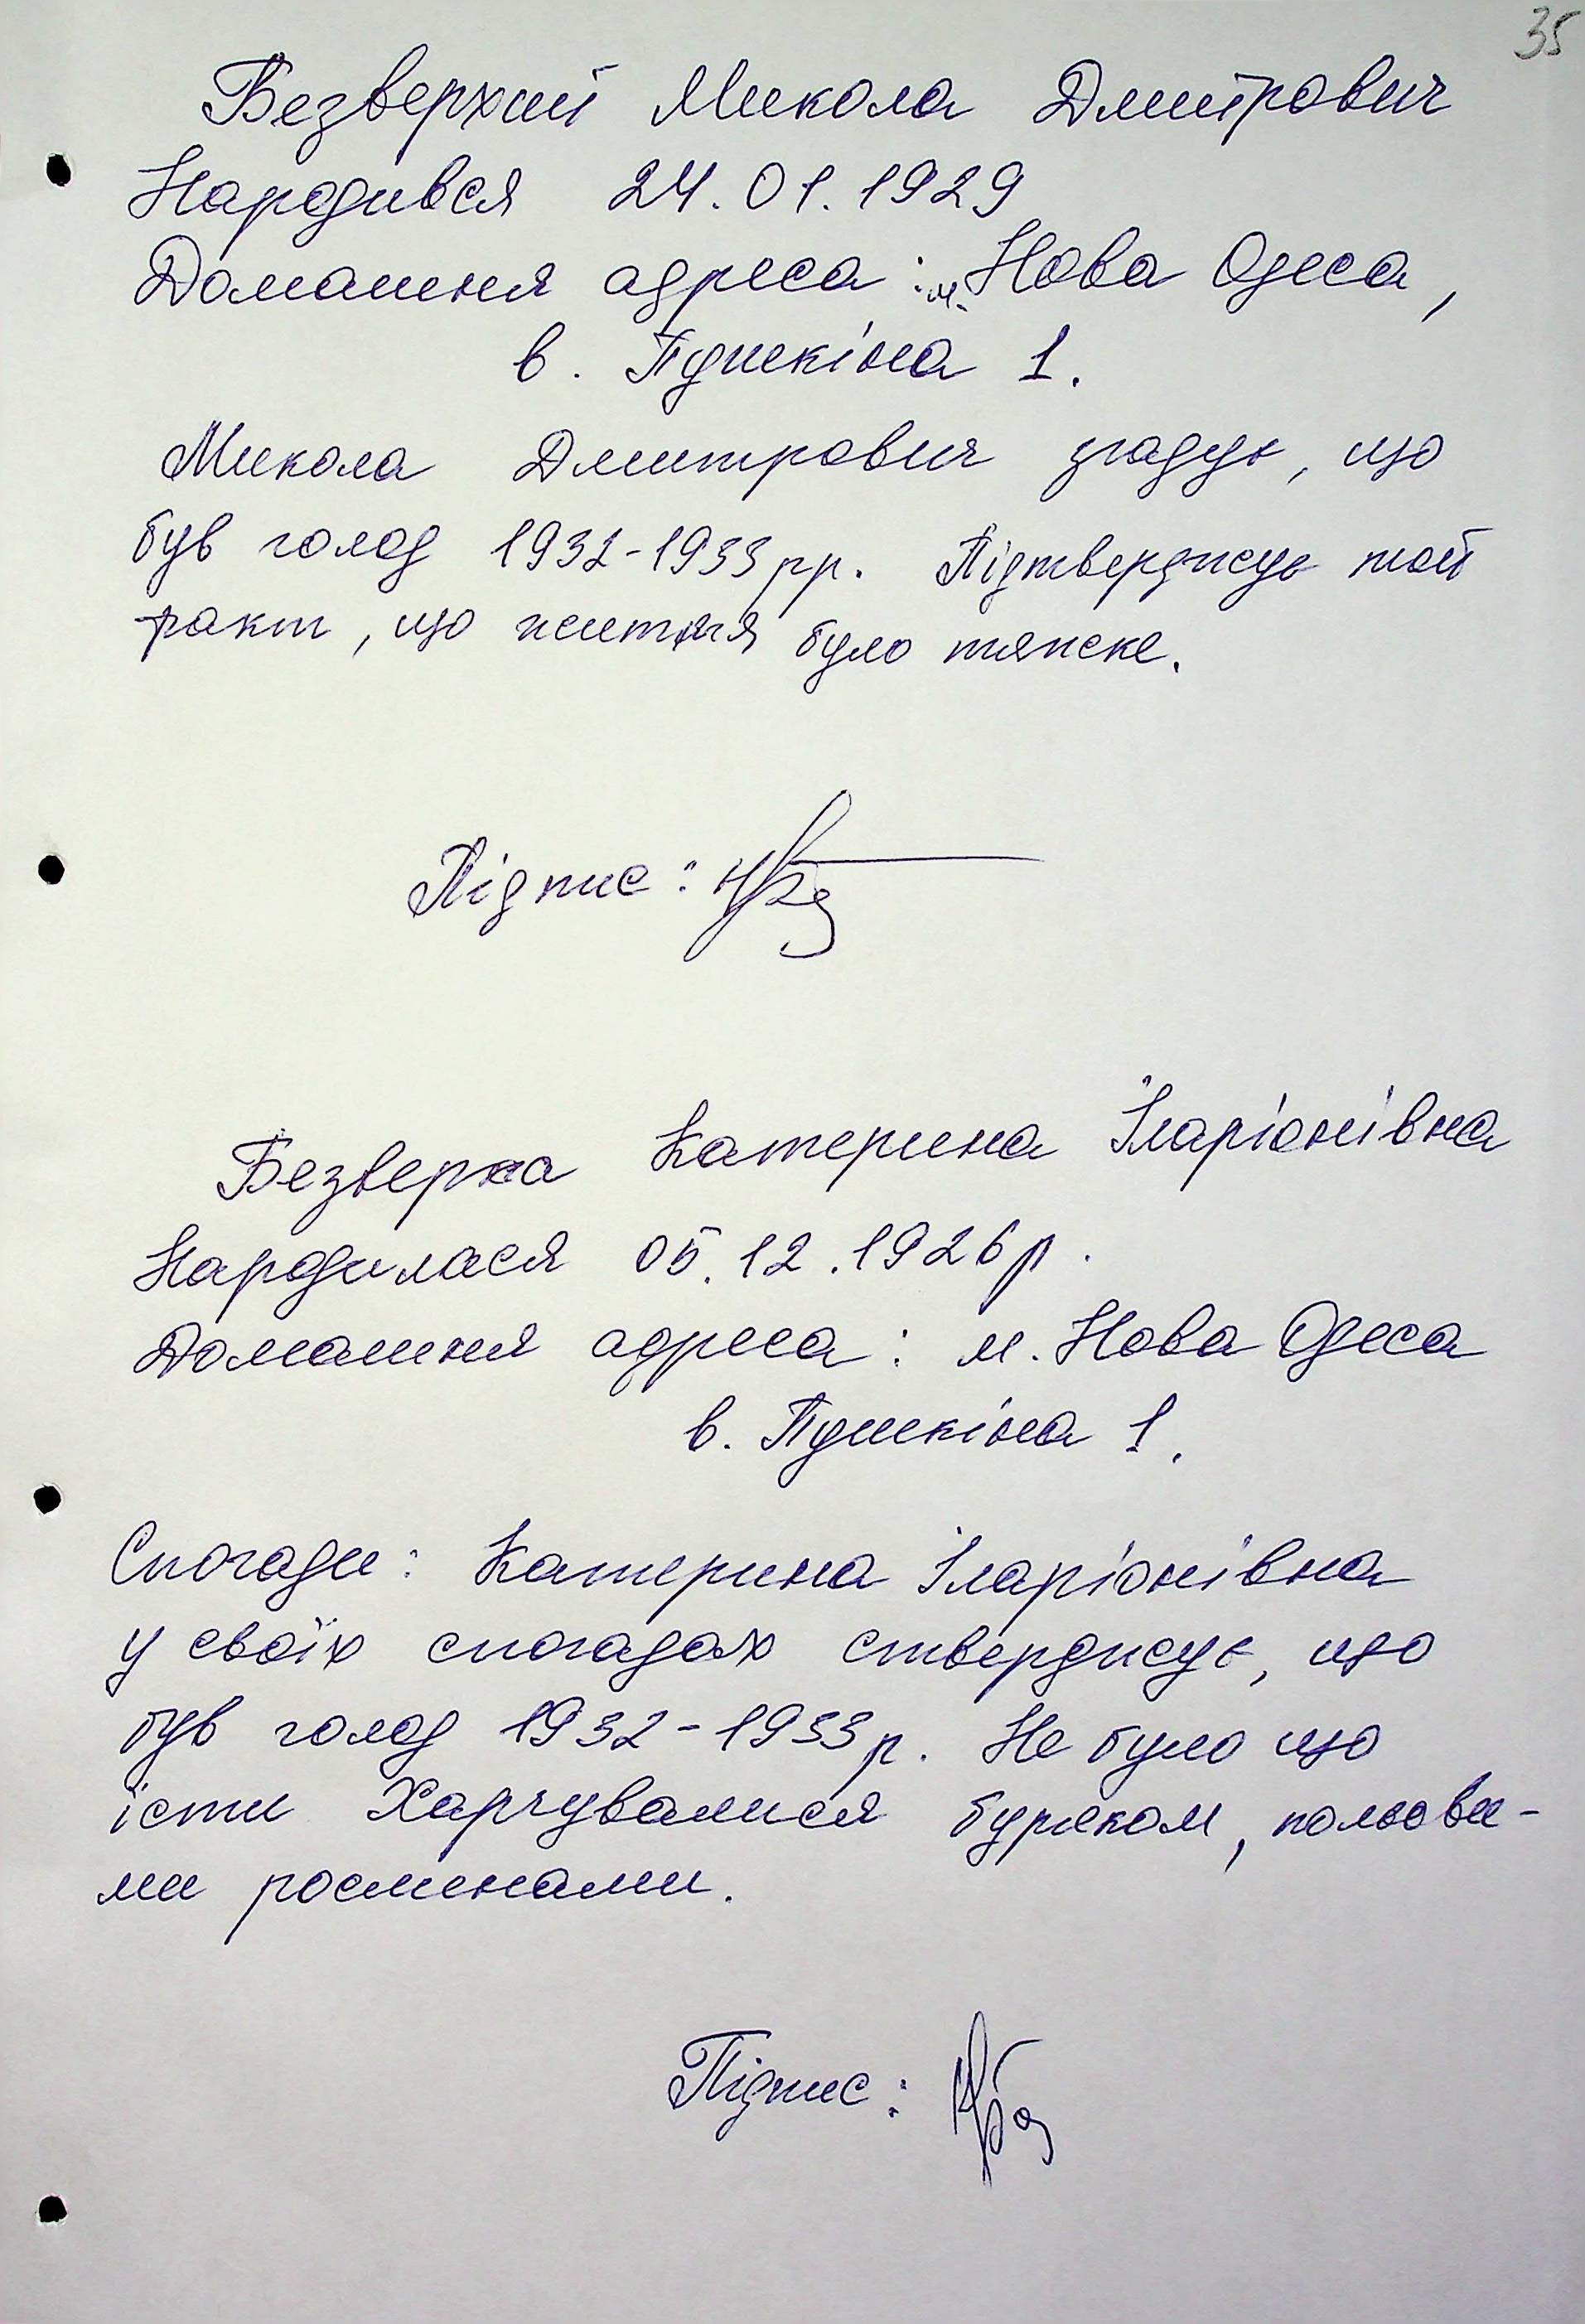 35
Безверхий Микола Дмитрович
Народився 24.01.1929
Домашня адреса: м. Нова Одеса,
в. Пушкіна 1.
Микола Дмитрович згадує, що
був голод 1932-1933 рр. Підтверджує той
факт, що життя було тяжке.
Підпис:
Безверха Катерина Іларіонівна
Народилася 05.12.1926 р.
Домашня адреса: м. Нова Одеса
в. Пушкіна 1.
Спогади: Катерина Іларіонівна
у своїх спогадах стверджує, що
був голод 1932-1933 р. Не було що
їсти Харчувалися буряком, польови-
ми рослинами.
Підпис: